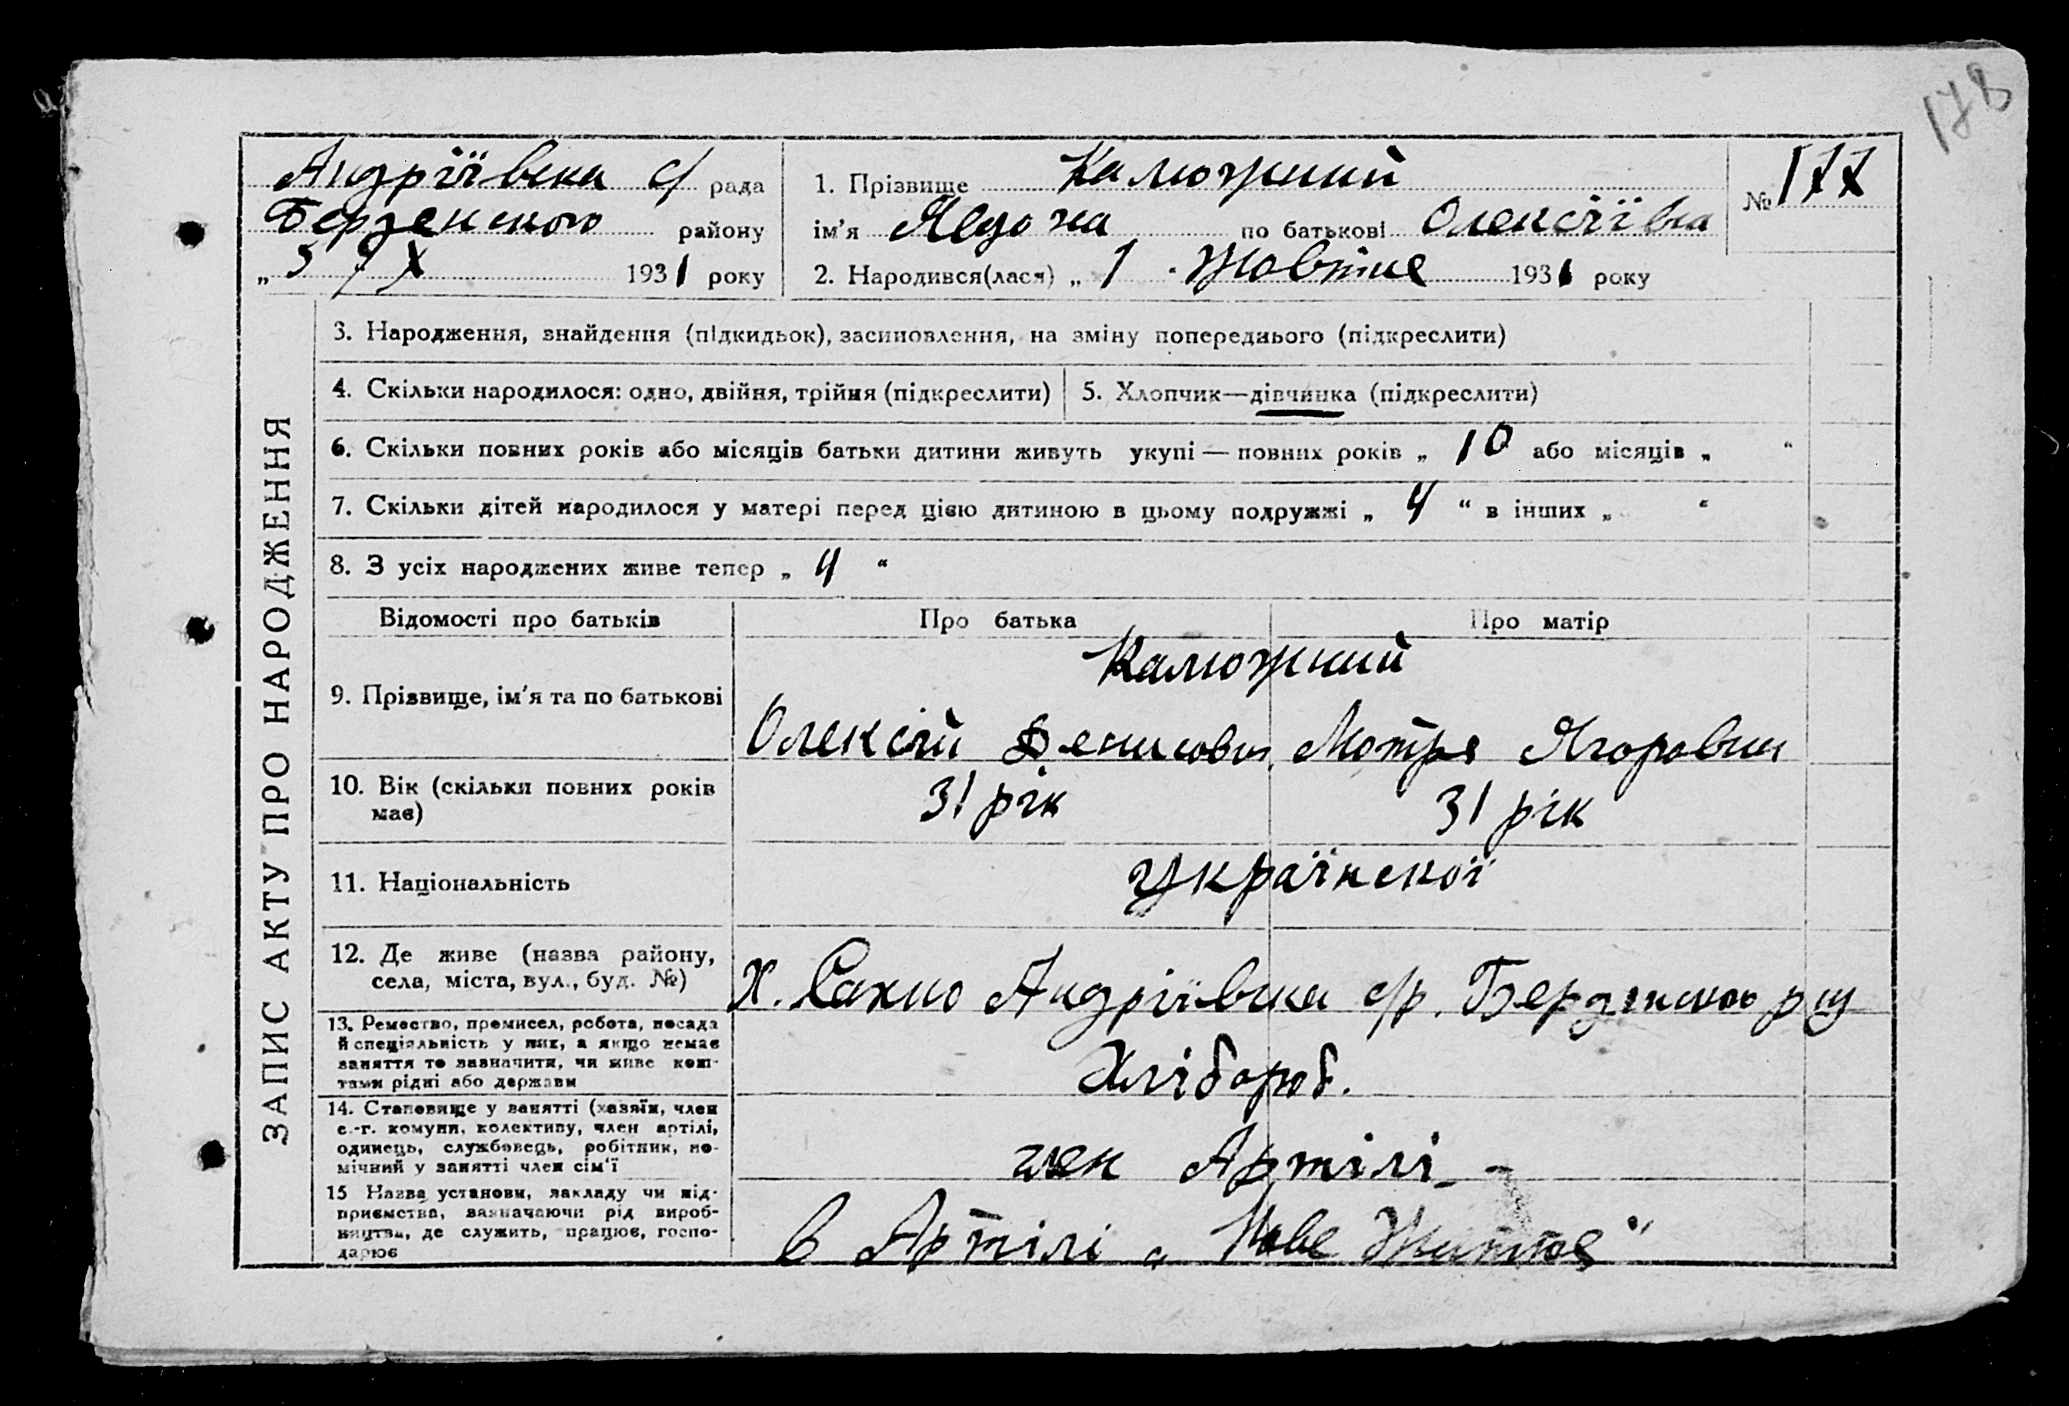 178
Андріївська с/ рада
Берденського району
„ 5 / X 1931 року
1. Прізвище Калюжний
ім'я Явдоха по батькові Олексіївна
2. Народився(лася) „ 1 . Жовтне 1931 року
№ 177
ЗАПИС АКТУ ПРО НАРОДЖЕННЯ
3. Народження, знайдення (підкидьок), засиновлення, на зміну попереднього (підкреслити)
4. Скільки народилося: одно, двійня, трійня (підкреслити)
5. Хлопчик—дівчинка (підкреслити)
6. Скільки повних років або місяців батьки дитини живуть укупі — повних років „ 10 або місяців „ “
7. Скільки дітей народилося у матері перед цією дитиною в цьому подружжі „ 4 “ в інших „ “
8. З усіх народжених живе тепер „ 4 “
Відомості про батьків
Про батька
Про матір
9. Прізвище, ім'я та по батькові
Калюжний
Олексій Денисович Мотря Ягоровна
10. Вік (скільки повних років
має)
31 рік
31 рік
11. Національність
Українскої
12. Де живе (назва району,
села, міста, вул., буд. №)
Х. Сахно Андріївська с/р. Берденського р-ну
13. Ремество, промисел, робота, посада
й спеціяльність у них, а якщо немає
заняття то зазначити, чи живе кош-
тами рідні або держави
Хлібороб.
14. Становище у занятті (хазяїн, член
с.-г. комуни, колективу, член артілі,
одинець, службовець, робітник, по-
мічний у занятті член сім'ї
член Артілі
15 Назва установи, закладу чи під-
приємства, зазначаючи рід вироб-
ництва, де служить, працює, госпо-
дарює
в Артілі „ Нове Життє“